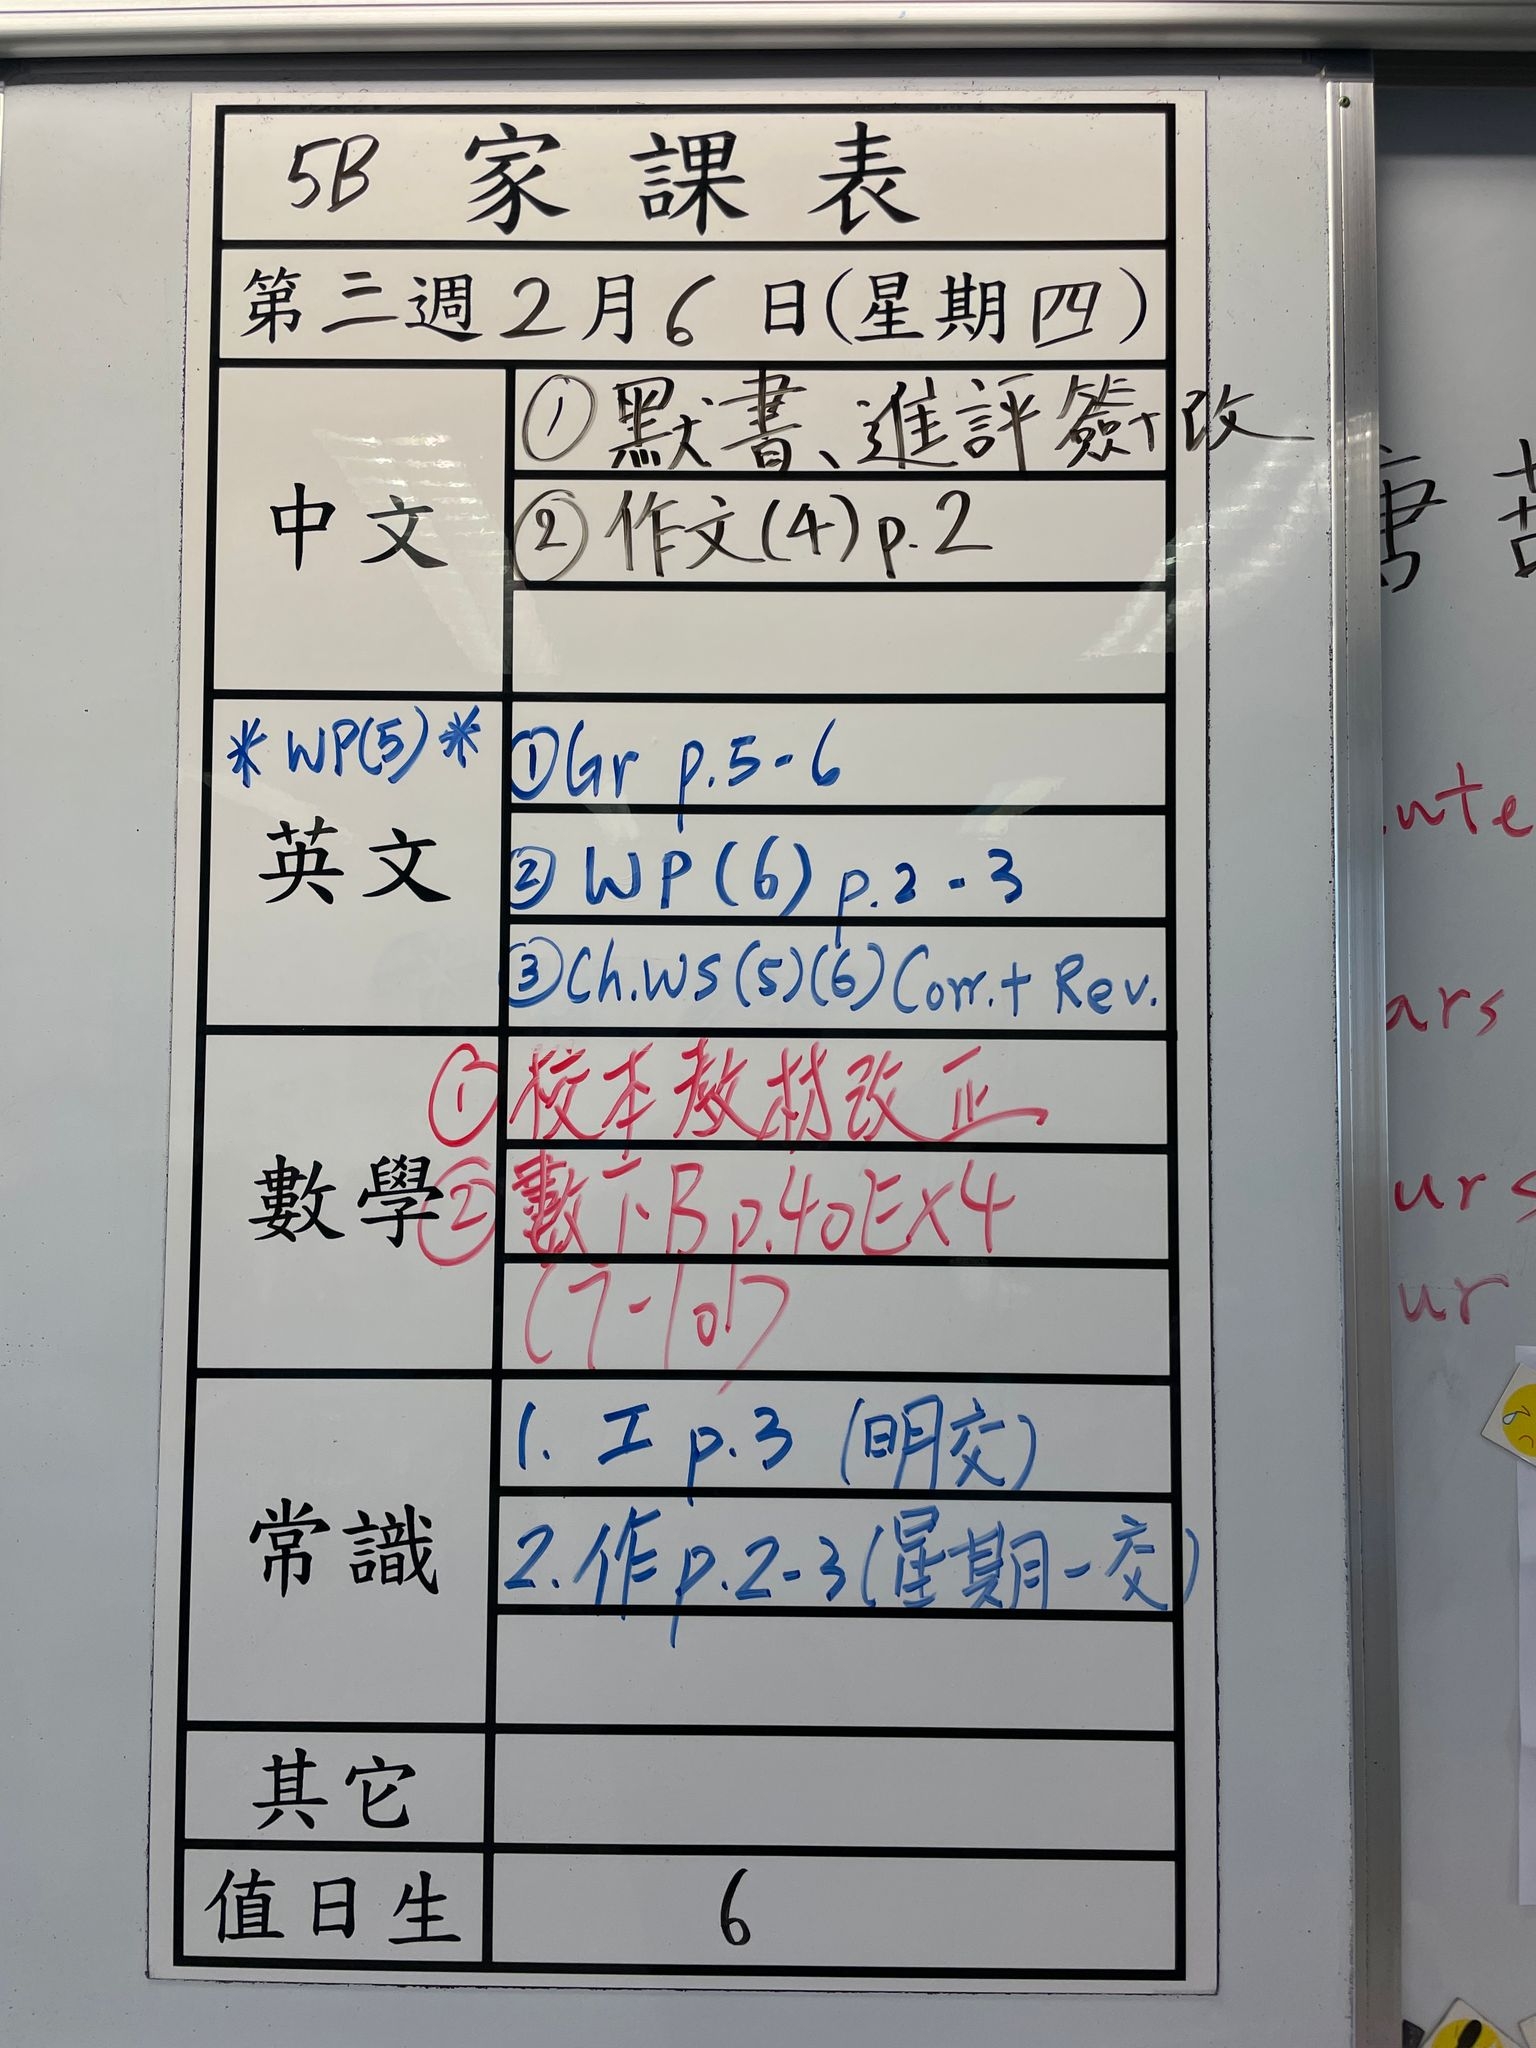 5B 家課表
第三週2月6日(星期四)
中文
①默書、進評簽+改
②作文(4)p.2
*WP(5)*
英文
①Gr p.5-6
②WP(6) p.2-3
③Ch.WS(5)(6)Corr.+ Rev.
數學
①校本教材改正
②數下B p.40Ex4
常識
1. 工 p.3 (明交)
2. 作p.2-3(星期一交)
其它
值日生
6
唐
ars
urs
ur